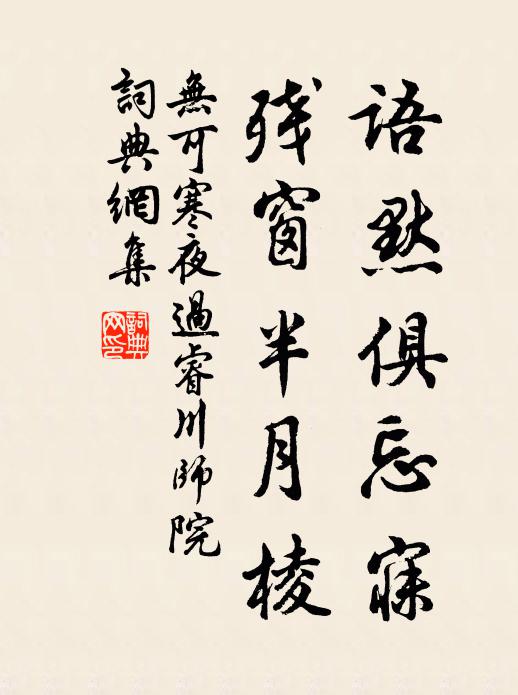 語默俱忘寐
残窗半月棱
無可寒夜過睿川師院
詞典網集
詞典网印